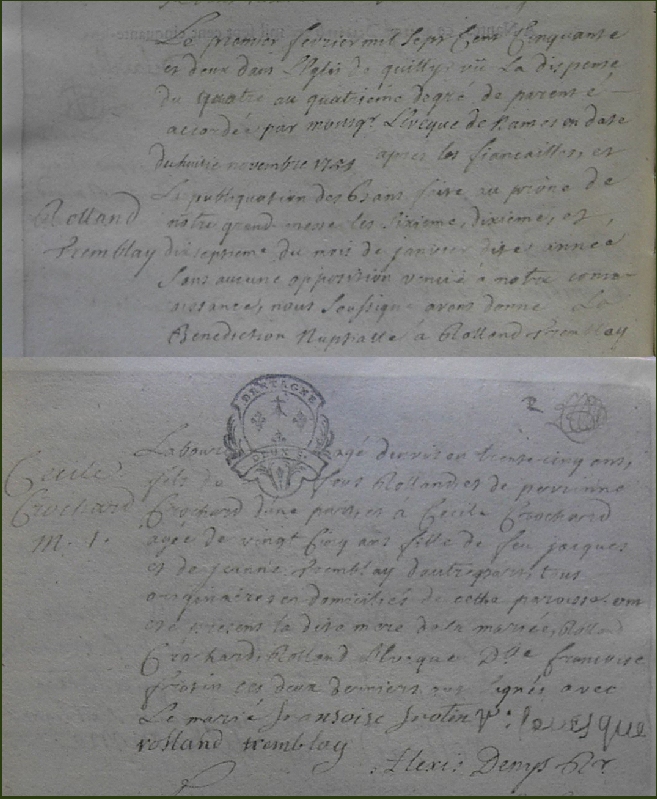 Le premier fevrier mil sept Cens Cinquante
et deux dans L'Eglise de quilly, vû La dispense
du quatre au quatrième degré de parenté
accordée par monsgr L'Eveque de Nantes en date
du huit novembre 1751 apres les fiancailles, et
La publiquation des Bans faite au prône de
Rolland
notre grand messe les sixieme, dixieme, et
Tremblay
dixseptieme du mois de janvier dite année
sans aucune opposition venuë a notre conno-
issance, nous soussigné avons donné La
Benediction Nuptialle a Rolland Tremblay
BRETAGNE
DEUX S.
Labour agé denviron trente cinq ans,
Cecile
fils de feus Rolland et de perrinne
Crochard
Crochard dune part, et à Cecile Crochard
M. 1.
agée de vingt Cinq ans fille de feu jacques
et de jeanne Tremblay dautre part, tous
originaires et domiciliés de cette paroisse. ont
été présens la dite mere de la mariée, Rolland
Crochard, Rolland Levesque Dlle francoise
frotin ces deux derniers signés avec
Le marié françoise frotin r: levesque
rolland tremblay
Alexis Demp Rr